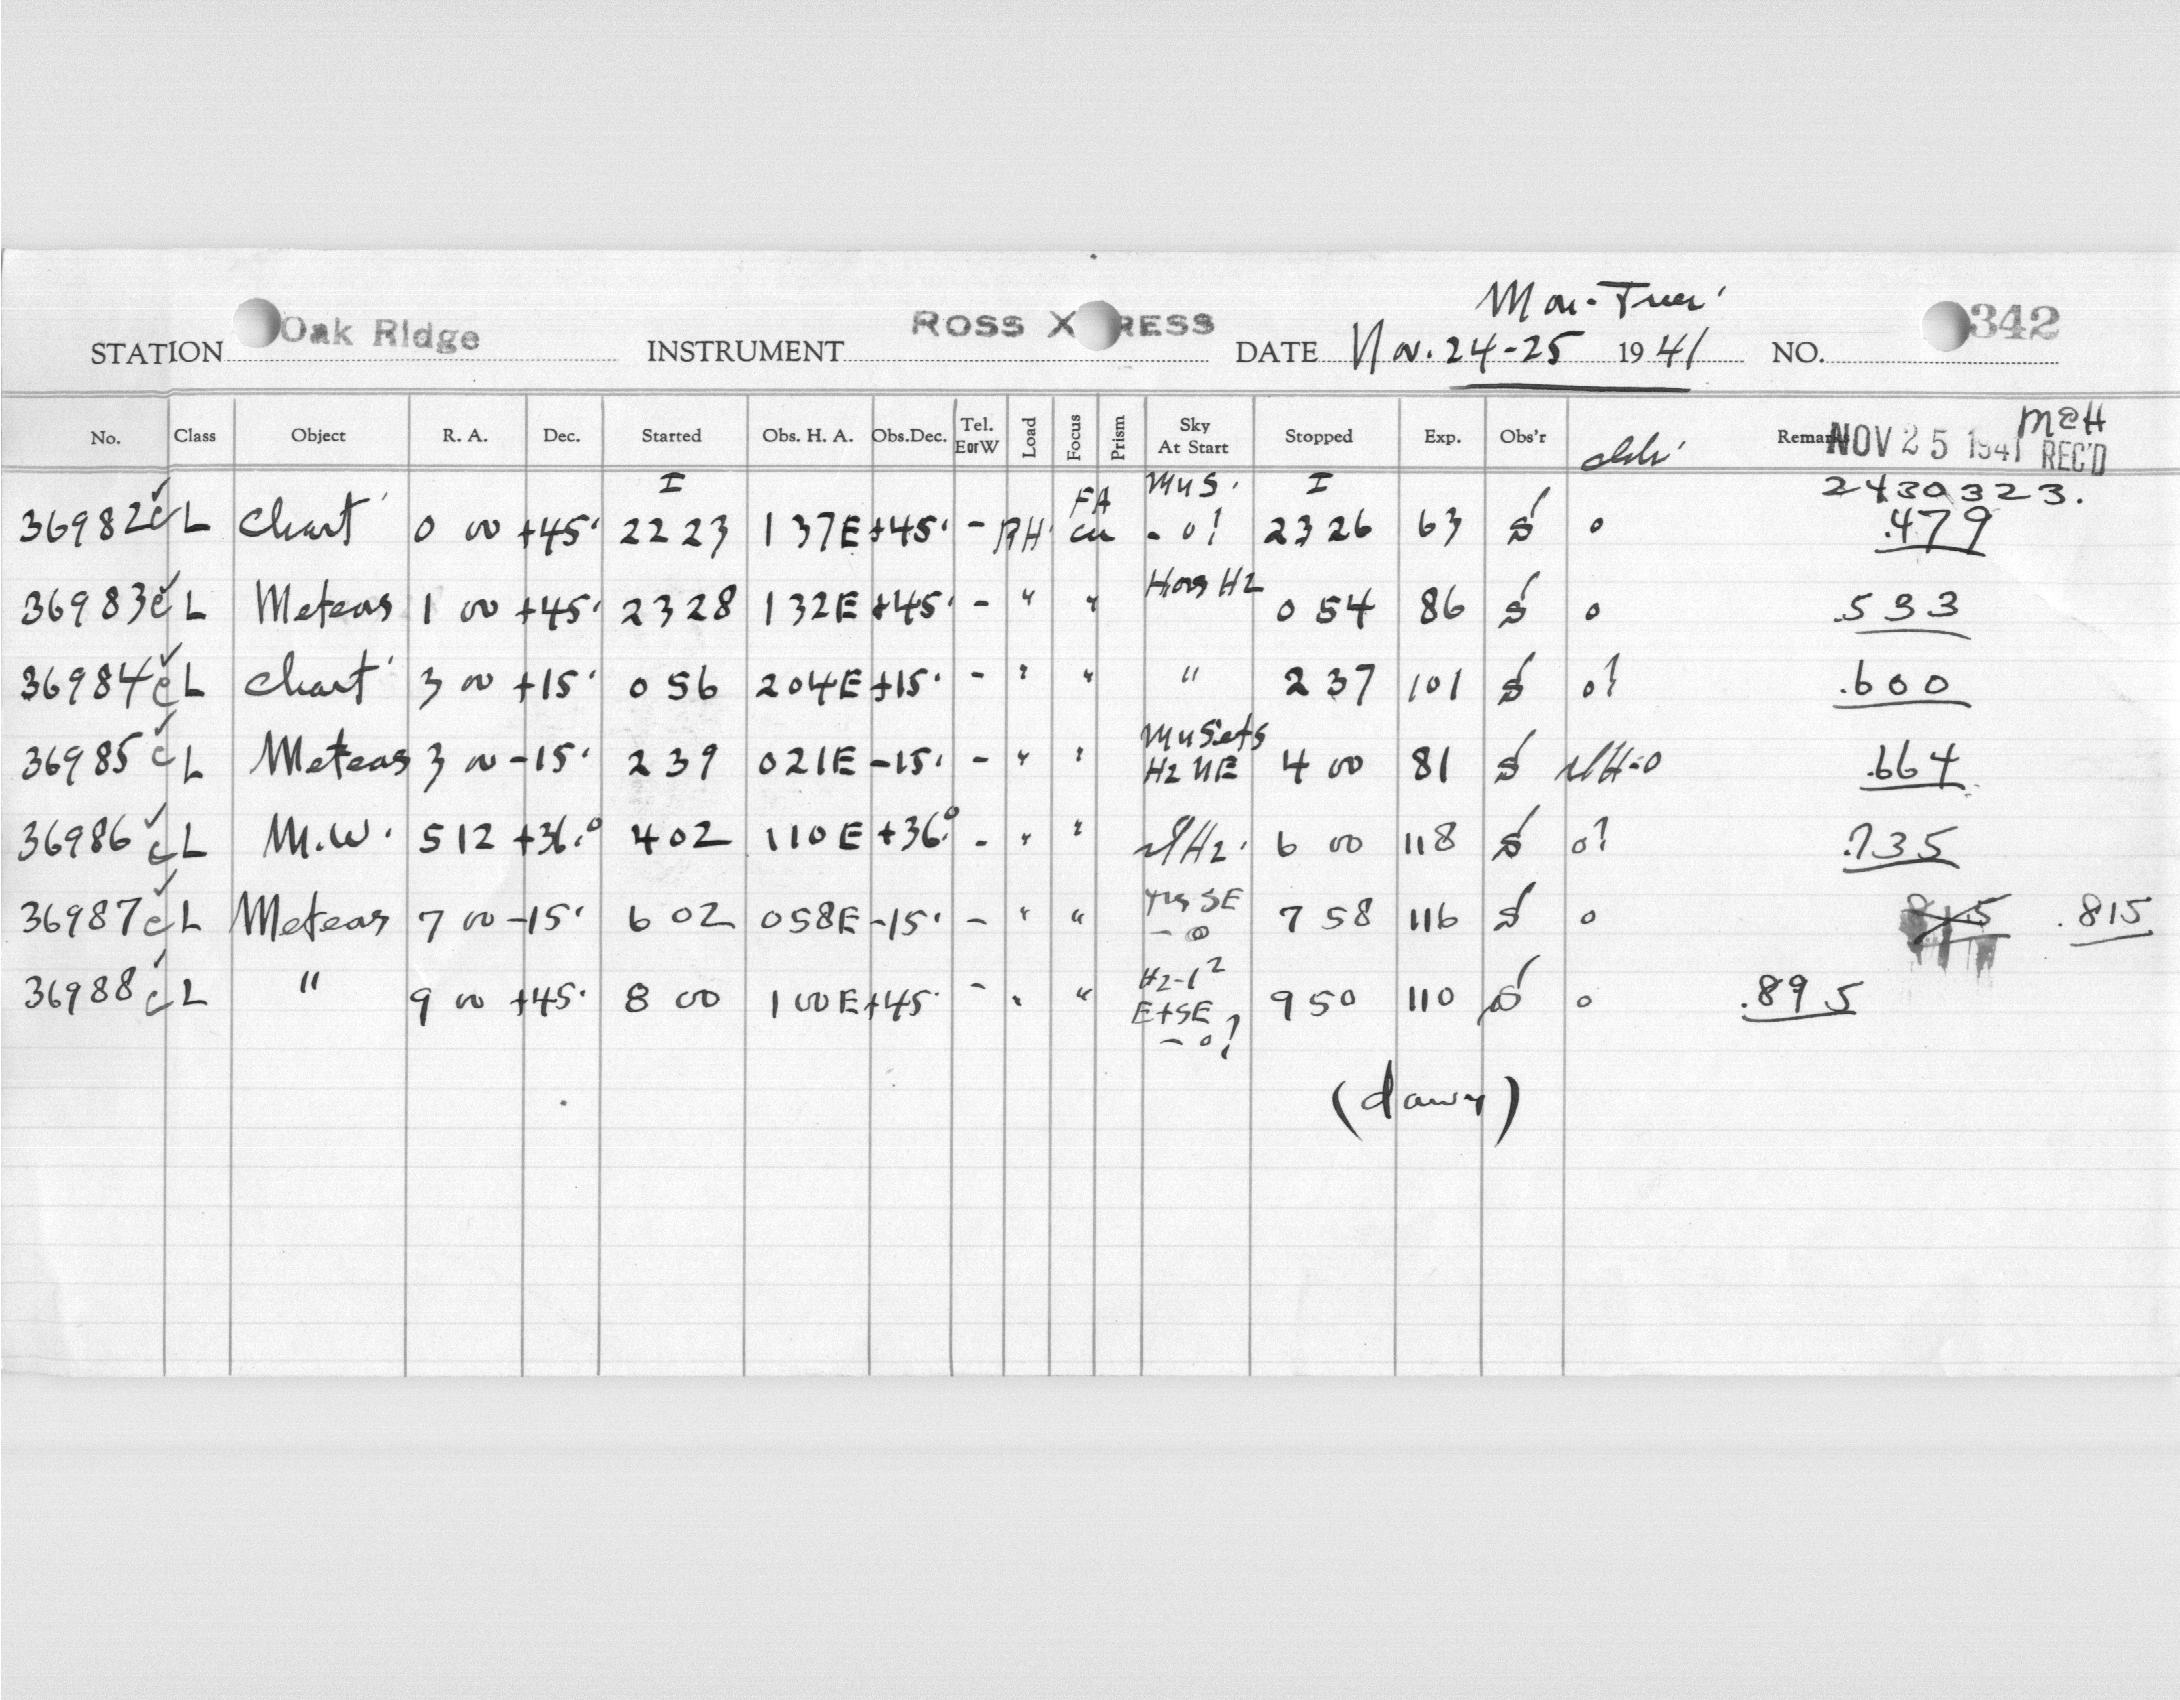 Mon-Tues'
STATION Oak Ridge INSTRUMENT ROSS X RESS DATE Nov. 24-25 1941 NO. 342
No. Class Object R. A. Dec. Started Obs. H. A. Obs.Dec. Tel. EorW Load Focus Prism Sky At Start Stopped Exp. Obs'r Remarks NOV 25 1941 REC'D
I I 2430323.
36982 L Chart 0 00 +45' 2223 137E +45' - RH FA - 0! 2326 63 S 0 .479
36983 L Meteors 1 00 +45' 2328 132E +45' - " " Hz 0 54 86 S 0 .533
36984 L Chart 3 00 +15' 0 56 204E +15' - " " " 2 37 101 S 0? .600
36985 L Meteors 3 00 -15' 2 39 021E -15' - " " Sets Hz NE 4 00 81 S .664
36986 L M.W. 5 12 +36.° 4 02 110E +36.° - " " Hz. 6 00 118 S 0? .735
36987 L Meteors 7 00 -15' 6 02 058E -15' - " " SE - 0 7 58 116 S 0 .815
36988 L " 9 00 +45' 8 00 100E +45' - " " Hz-1² E+SE - 0? 9 50 110 S 0 .895
(dawn)